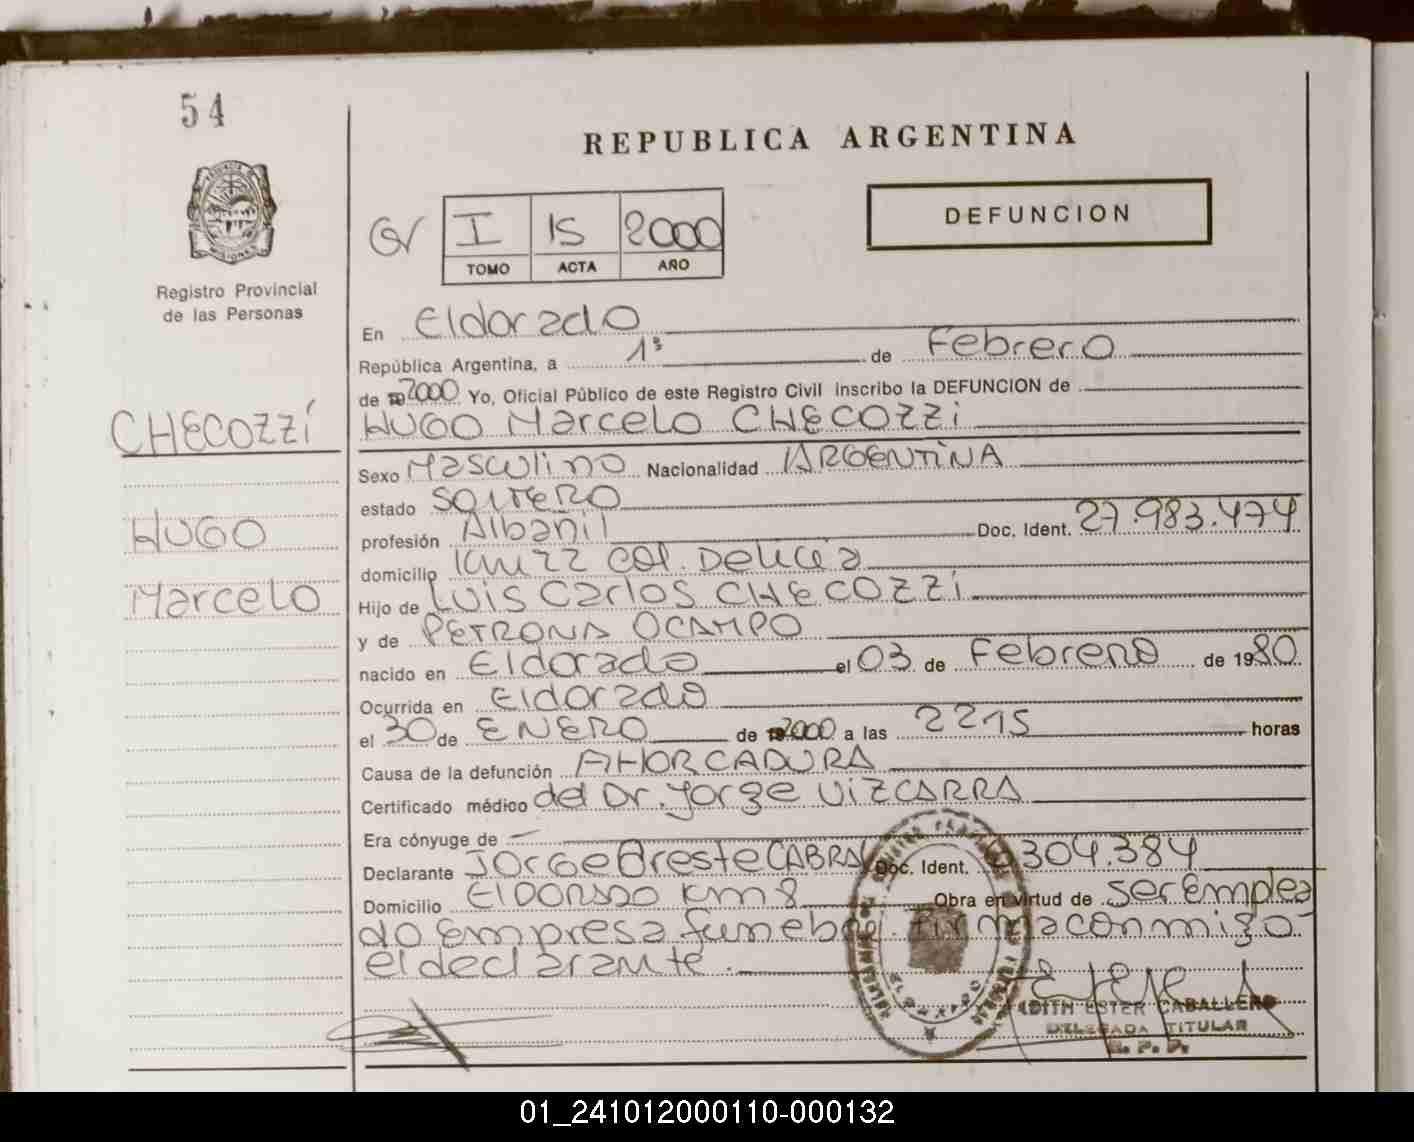 54
REPUBLICA ARGENTINA
DEFUNCION
I 15 2000
TOMO ACTA AÑO
Registro Provincial
de las Personas
En Eldorado
República Argentina, a 1º de Febrero
de 2000 Yo, Oficial Público de este Registro Civil inscribo la DEFUNCION de
CHECOZZI
HUGO Marcelo CHECOZZI
Sexo Masculino Nacionalidad ARGENTINA
estado SOLTERO
HUGO
profesión Albañil Doc. Ident. 27.983.474
domicilio Km 22 Col. Delicia
Marcelo
Hijo de Luis Carlos CHECOZZI
y de PETRONA OCAMPO
nacido en Eldorado el 03 de Febrero de 1980
Ocurrida en Eldorado
el 30 de ENERO de 2000 a las 2215 horas
Causa de la defunción AHORCADURA
Certificado médico del Dr. Jorge VIZCARRA
Era cónyuge de —
Declarante Jorge Oreste CABRAL Doc. Ident. 304.384
Domicilio ELDORADO Km 8 Obra en virtud de ser emplea
do empresa funebre. firma conmigo
el declarante.
EDITH ESTER CABALLERO
DELEGADA TITULAR
R. P. P.
01_241012000110-000132